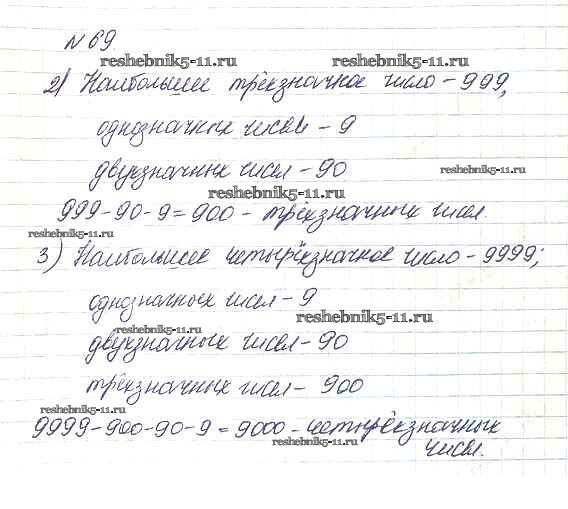 № 69.
reshebnik5-11.ru reshebnik5-11.ru
2) Наибольшее трёхзначное число – 999;
однозначных чисел – 9
двухзначных чисел – 90 reshebnik5-11.ru
reshebnik5-11.ru
999-90-9=900 - трёхзначных чисел.
reshebnik5-11.ru
3) Наибольшее четырёхзначное число – 9999;
однозначных чисел – 9
reshebnik5-11.ru
reshebnik5-11.ru
двухзначных чисел – 90
трёхзначных чисел – 900
reshebnik5-11.ru
9999-900-90-9=9000 - четырёхзначных
reshebnik5-11.ru
чисел.